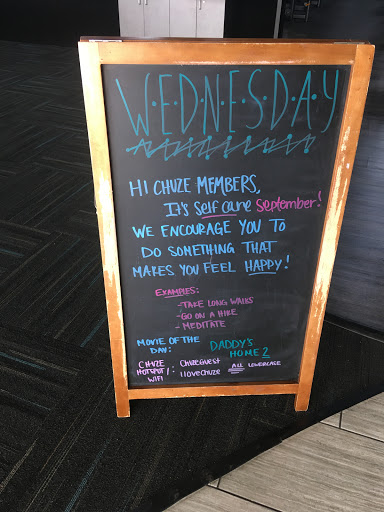 W·E·D·N·E·S·D·A·Y
HI CHUZE MEMBERS,
It's Self Care September!
WE ENCOURAGE YOU TO
DO SOMETHING THAT
MAKES YOU FEEL HAPPY!
EXAMPLES:
- TAKE LONG WALKS
- GO ON A HIKE
- MEDITATE
MOVIE OF THE DAY: DADDY'S HOME 2
CHUZE HOTSPOT/WIFI: ChuzeGuest
ilovechuze ALL LOWERCASE